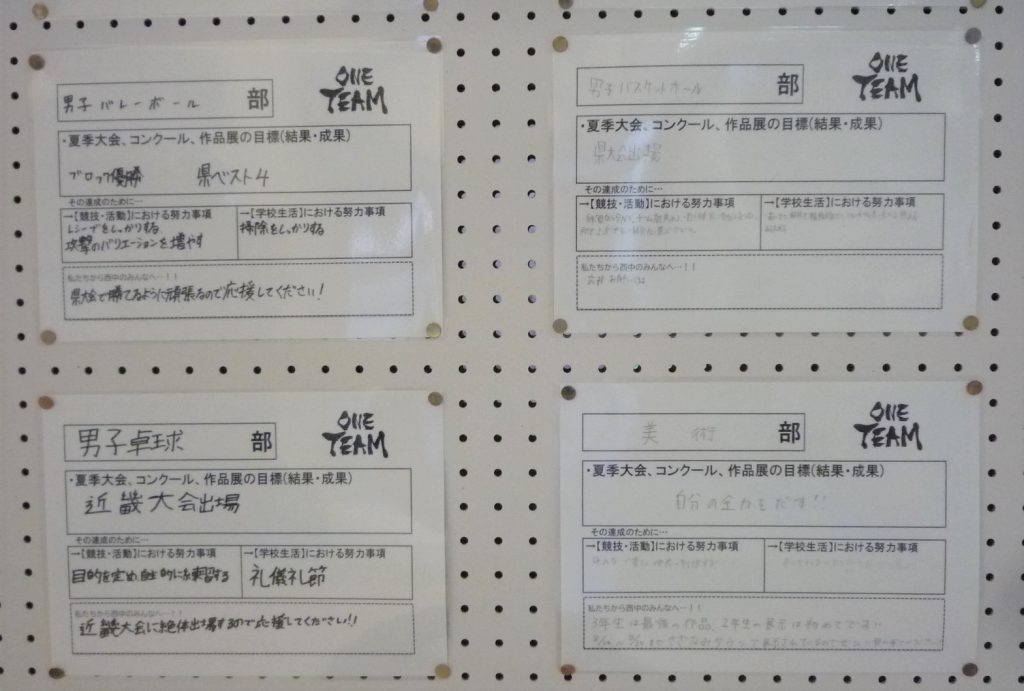 ONE
TEAM
男子バレーボール 部
・夏季大会、コンクール、作品展の目標(結果・成果)
ブロック優勝 県ベスト4
その達成のために…
→【競技・活動】における努力事項
レシーブをしっかりする
攻撃のバリエーションを増やす
→【学校生活】における努力事項
掃除をしっかりする
私たちから西中のみんなへ…！！
県大会で勝てるように頑張るので応援してください!
ONE
TEAM
男子バスケットボール 部
・夏季大会、コンクール、作品展の目標(結果・成果)
県大会出場
その達成のために…
→【競技・活動】における努力事項
→【学校生活】における努力事項
私たちから西中のみんなへ…！！
ONE
TEAM
男子卓球 部
・夏季大会、コンクール、作品展の目標(結果・成果)
近畿大会出場
その達成のために…
→【競技・活動】における努力事項
目的を定め、自主的に練習する
→【学校生活】における努力事項
礼儀礼節
私たちから西中のみんなへ…！！
近畿大会に絶体出場するので応援してください!!
ONE
TEAM
美術 部
・夏季大会、コンクール、作品展の目標(結果・成果)
自分の全力をだす!!
その達成のために…
→【競技・活動】における努力事項
→【学校生活】における努力事項
私たちから西中のみんなへ…！！
3年生は最後の作品、2年生の展示は初めてです!!